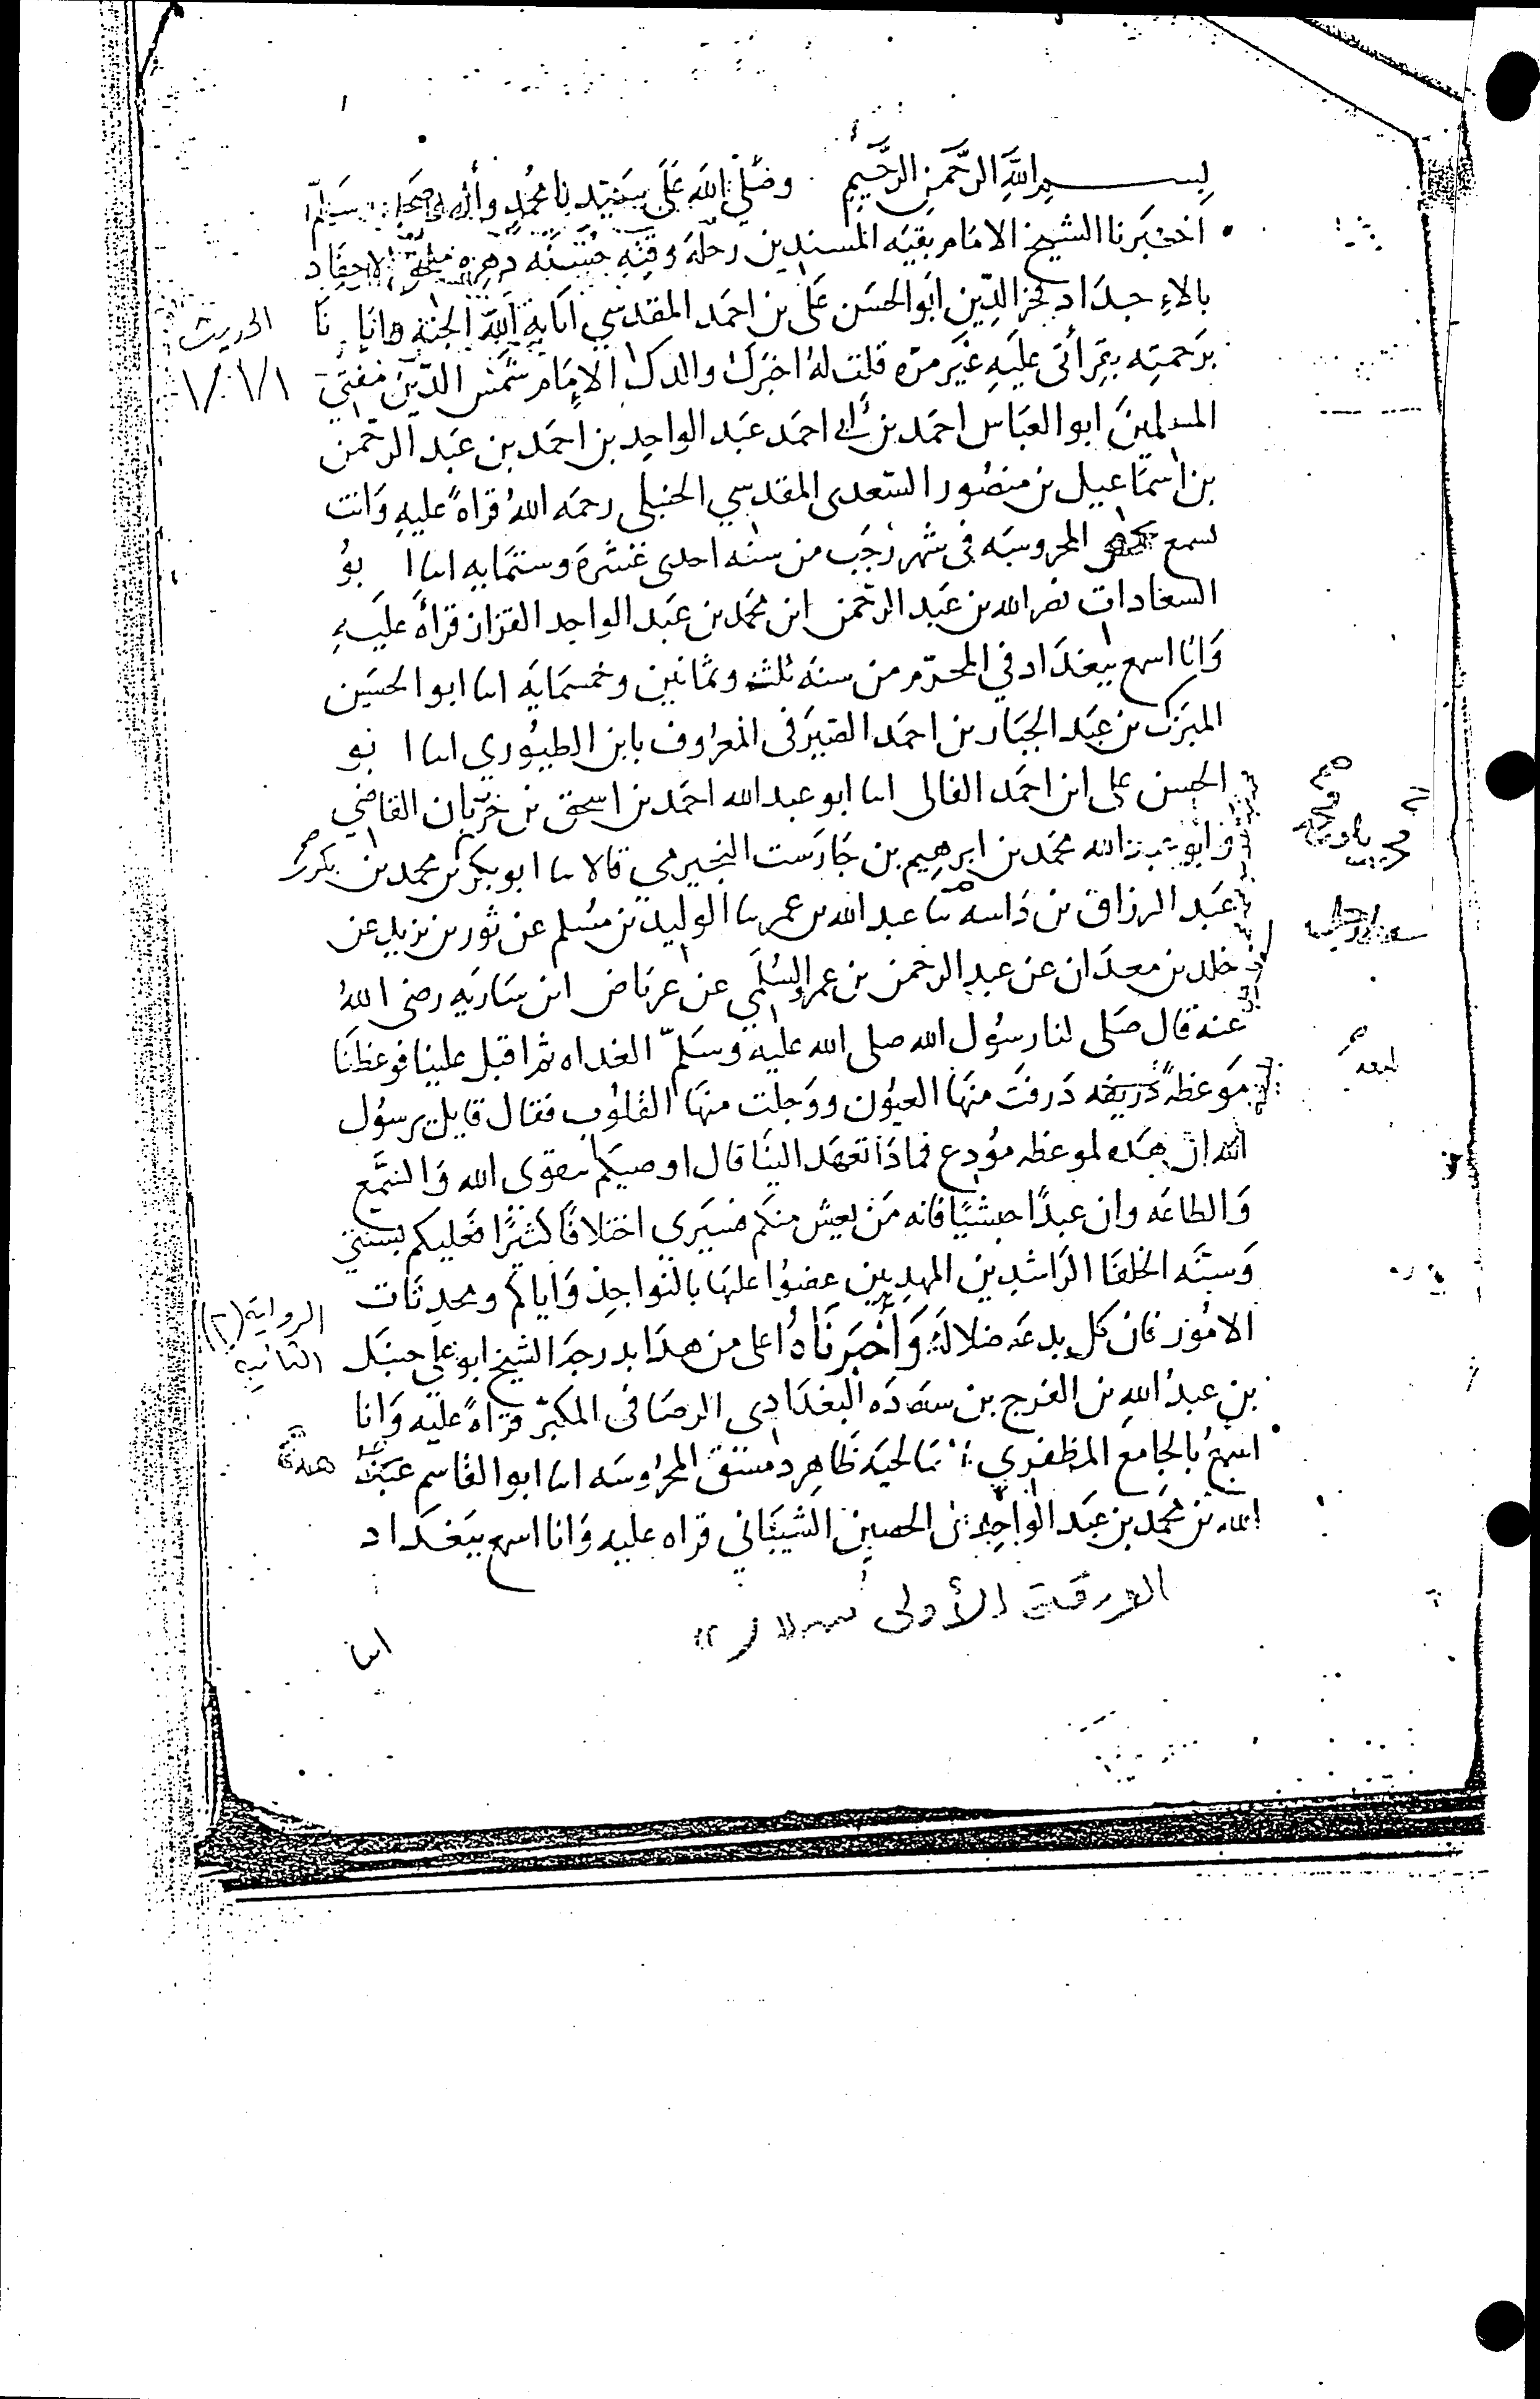 بسم الله الرحمن الرحيم وصلى الله على سيدنا محمد وآله وصحبه وسلم
اخبرنا الشيخ الامام بقيه المسندين رحلة وقته ملحق الاحفاد
بالاجداد فخر الدين ابو الحسن على بن احمد المقدسي اثابه الله الجنة وايانا
برحمته بقراتى عليه غير مره قلت له اخبرك والدك الامام شمس الدين مفتي
المسلمين ابو العباس احمد بن أبي احمد عبد الواحد بن احمد بن عبد الرحمن
بن اسماعيل بن منصور السعدى المقدسي الحنبلي رحمه الله قراة عليه وانت
تسمع المحروسه في شهر رجب من سنه احدى عشرة وستمايه انا ابو
السعادات نصر الله بن عبد الرحمن ابن محمد بن عبد الواحد القزاز قراة عليه
وانا اسمع ببغداد في المحرم من سنه ثلث وثمانين وخمسمايه انا ابو الحسين
المبرك بن عبد الجبار بن احمد الصيرفى المعروف بابن الطيوري انا ابو
الحسن على ابن احمد الفالى انا ابو عبد الله احمد بن اسحق بن خربان القاضي
وابو عبد الله محمد بن ابرهيم بن جارست النجيرمي قالا نا ابو بكر بن محمد بن بكر
عبد الرزاق بن داسه نا عبد الله بن عمر نا الوليد بن مسلم عن ثور بن يزيد عن
خلد بن معدان عن عبد الرحمن بن عمرو السلمي عن عرباض ابن ساريه رضى الله
عنه قال صلى لنا رسول الله صلى الله عليه وسلم الغداه ثم اقبل علينا فوعظنا
موعظة ذرفت منها العيون ووجلت منها القلوب فقال قايل يرسول
الله ان هذه لموعظه مودع فماذا تعهد الينا قال اوصيكم بتقوى الله والسمع
والطاعه وان عبدا حبشيا فانه من يعيش منكم فسيري اختلافا كثيرا فعليكم بسنتي
وسنه الخلفا الراشدين المهديين عضوا عليها بالنواجذ واياكم ومحدثات
الامور فان كل بدعه ضلالة وأخبرناه اعلى من هذا بدرجه الشيخ ابو علي حنبل
بن عبد الله بن الفرج بن سعاده البغدادى الرصافى المكبر قراة عليه وانا
اسمع بالجامع المظفري بصالحيه ظاهر دمشق المحروسه انا ابو القاسم هبة
الله بن محمد بن عبد الواحد بن الحصين الشيباني قراه عليه وانا اسمع ببغداد
انا
الورقة الأولى
الحديث
الرواية (٢)
الثانية